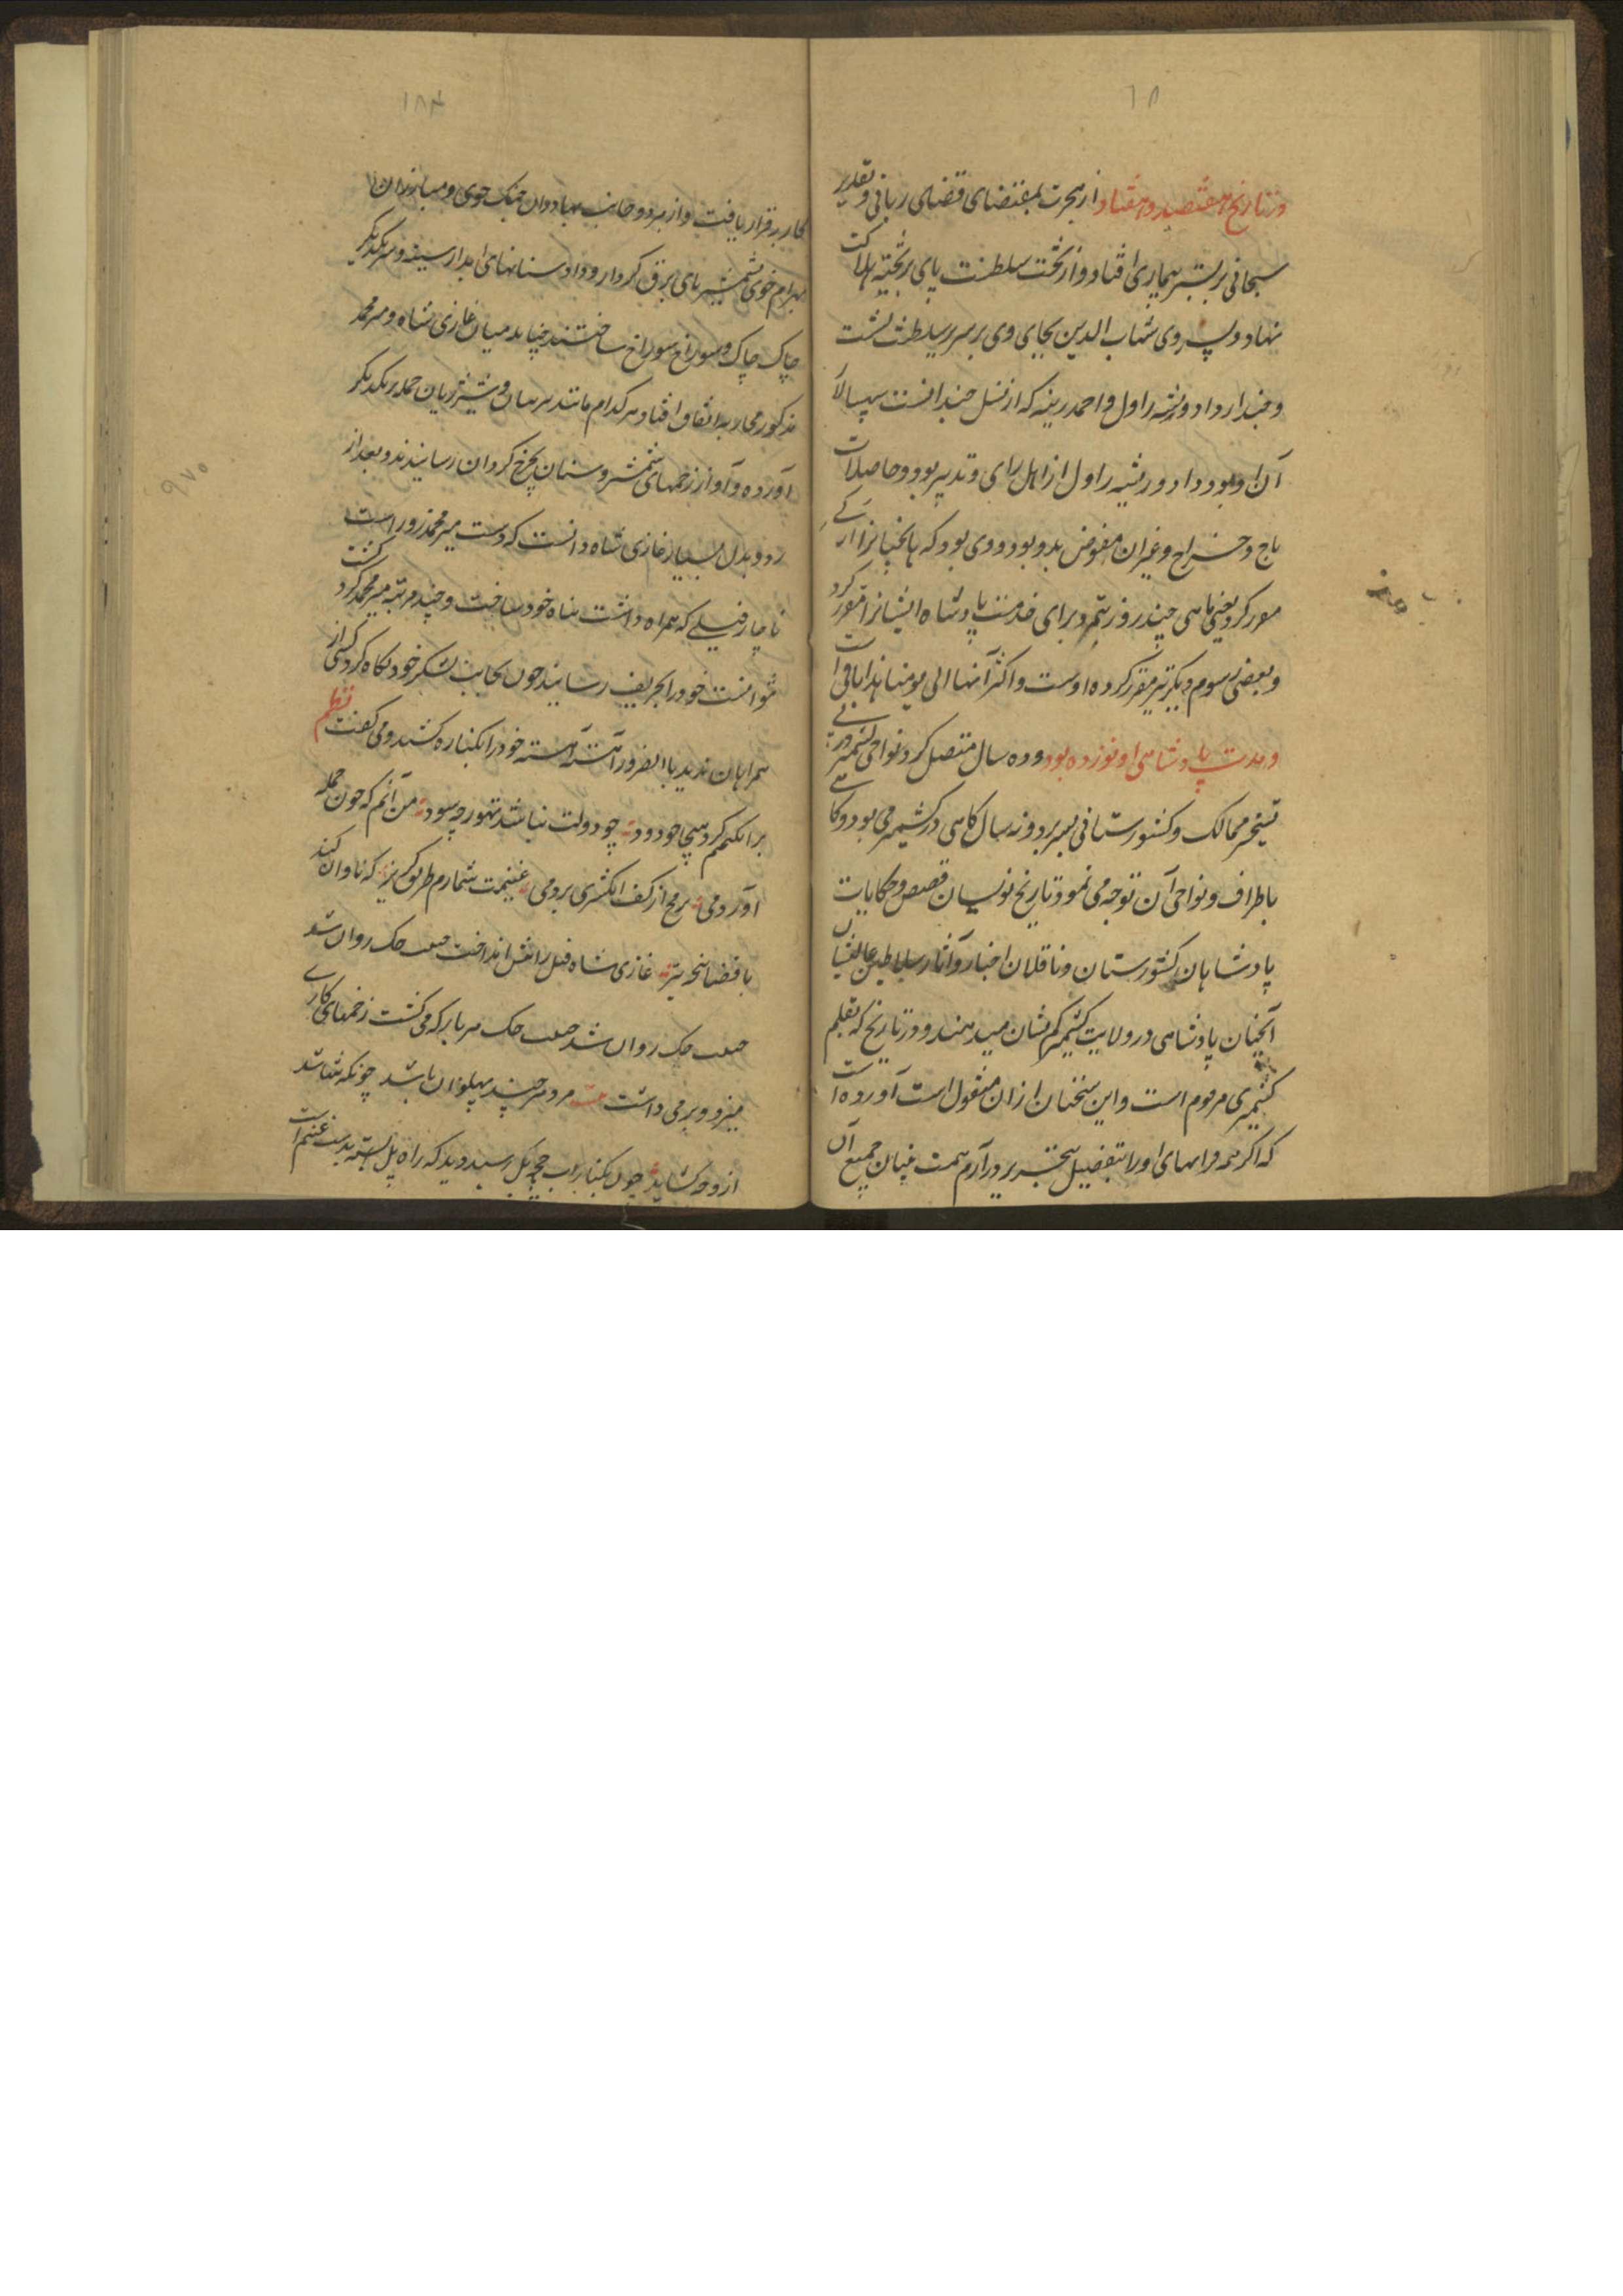 ۱۸
در تاریخ هفتصد و هفتاد از هجرت بمقتضای قضای ربانی و تقدیر
سبحانی بر بستر بیماری افتاد و از تخت سلطنت پای بر تختهٔ هلاکت
نهاد و پسر وی شهاب الدین بجای وی بر سریر سلطنت نشست
و چندار داد ورشه راول و احمد رینه که از نسل چندا است سپسالا
آن او بود و اد ورشه راول از اهل رای و تدبیر بود و حاصلات
باج و خراج و غیر آن مفوض بدو بود و وی بود که هانجیانرا
مقرر کرد یعنی ماهی چند روز بتم و برای خدمت پادشاه ایشانرا مقرر کرد
و بعضی رسوم دیگر نیز مقرر کرده اوست و اکثر آنها الی یومنا هذا باقی است
و مدت پادشاهی او نوزده بود و ده سال متصل کرد نواحی کشمیر در پی
تسخیر ممالک و کشورستانی بسر برد و نه سال گاهی در کشمیر می بود و گاهی
باطراف و نواحی آن توجه می نمود تاریخ نویسان قصص و حکایات
پادشاهان کشورستان و ناقلان اخبار و آثار سلاطین عالیشان
آنچنان پادشاهی در ولایت کشمیر کم نشان میدهند و در تاریخ که بقلم
کشمیری مرقوم است و این سخنان ازان منقول است آورده است
که اگر همه مراسمهای او را بتفصیل بتحریر در آرم همت بیان جمیع آن
۱۸۴
محاربه قرار یافت و از هر دو جانب بهادران جنگ جوی و مبارزان
بهرام خوی شمشیرهای برق کردار و داد سنانهای آبدار سینه و سر یکدیگر
چاک چاک و سوراخ سوراخ ساختند چنانچه میان غازی شاه و میر محمد
مذکور محاربه اتفاق افتاد هر کدام مانند ببر بیان و شیر ژیان حمله بر یکدیگر
آورده و آواز زخمهای شمشیر و سنان بچرخ گردان رسانیدند و بعد از
رد و بدل بسیار غازی شاه دانست که دست میر محمد زور است
ناچار فیلی که همراه داشت پناه خود ساخت و چند مرتبه میر محمد گرد گشت
نتوانست خود را بحریف رسانید چون بجانب لشکر خود نگاه کرد کسی از
همراهان ندید بالضرور آهسته آهسته خود را بکناره کشید و می گفت نظم
برانگیختم گرد هیجا چو دود چو دولت نباشد تهور چه سود من آنم که چون حمله
آوردمی برمح از کف انگشتری بردمی غنیمت شمارم طریق گریز که نادان کند
با قضا پنجه تیز غازی شاه فیل را پیش انداخت حبیب چک روان شد
حبیب چک روان شد حبیب چک هر بار که می گشت زخمهای کاری
میزد و بر می داشت بیت مرد هر چند پهلوان باشد چونکه تنها شد
ازو چه گشاید چون بکنار آب چچه بل رسید دید که راه پل بسته بدست غنیم است
۹۷۰